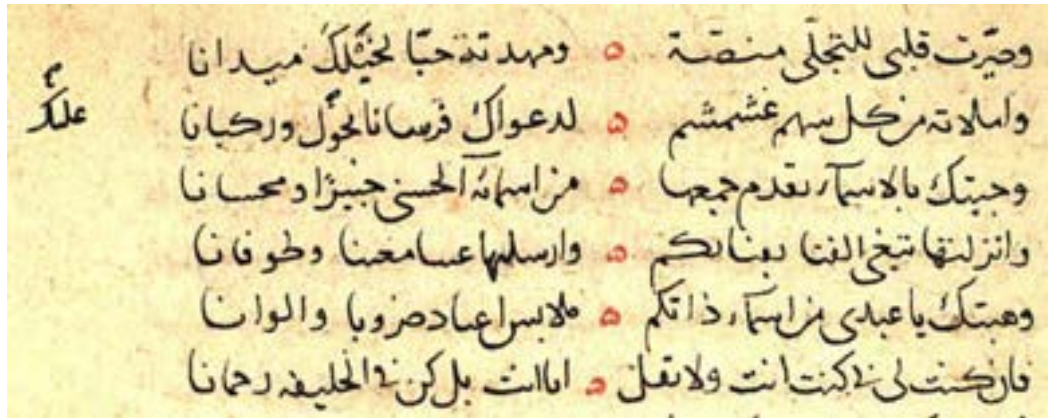 وصيّرت قلبى للتجلّى منصّة ه ومهدته حبّا لخيلك ميدانا
واملاته من كل سهم غشمشم ه لدعواك فرسانا تحوّل وركبانا
وجيتك بالاسمآء يقدم جمعها ه من اسمائه الحسنى
وانزلتها تبغى الفنا بفنائكم ه وارسلتها وطوفانا
وهبتك يا عبدى من اسمآء ذاتكم ه ملابس اعياد ضروبا والوانا
فان كنت لى فى كنت انت ولا تقل ه اناانت بل كن فى الخليفه رحمانا